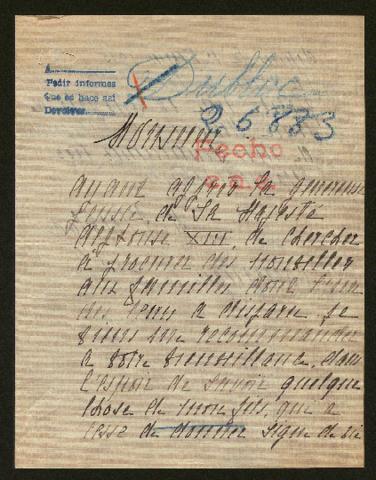 A
Pedir informes
que se hace así
Devolver
Dubloc
25883
Monsieur
Hecho
ayant appris la généreuse
pensée de Sa Majesté
Alphonse XIII, de chercher
à procurer des nouvelles
aux familles dont l'un
des leurs a disparu je
viens me recommander
à votre bienveillance, dans
l'espoir de savoir quelque
chose de mon fils, qui a
cessé de donner signe de vie